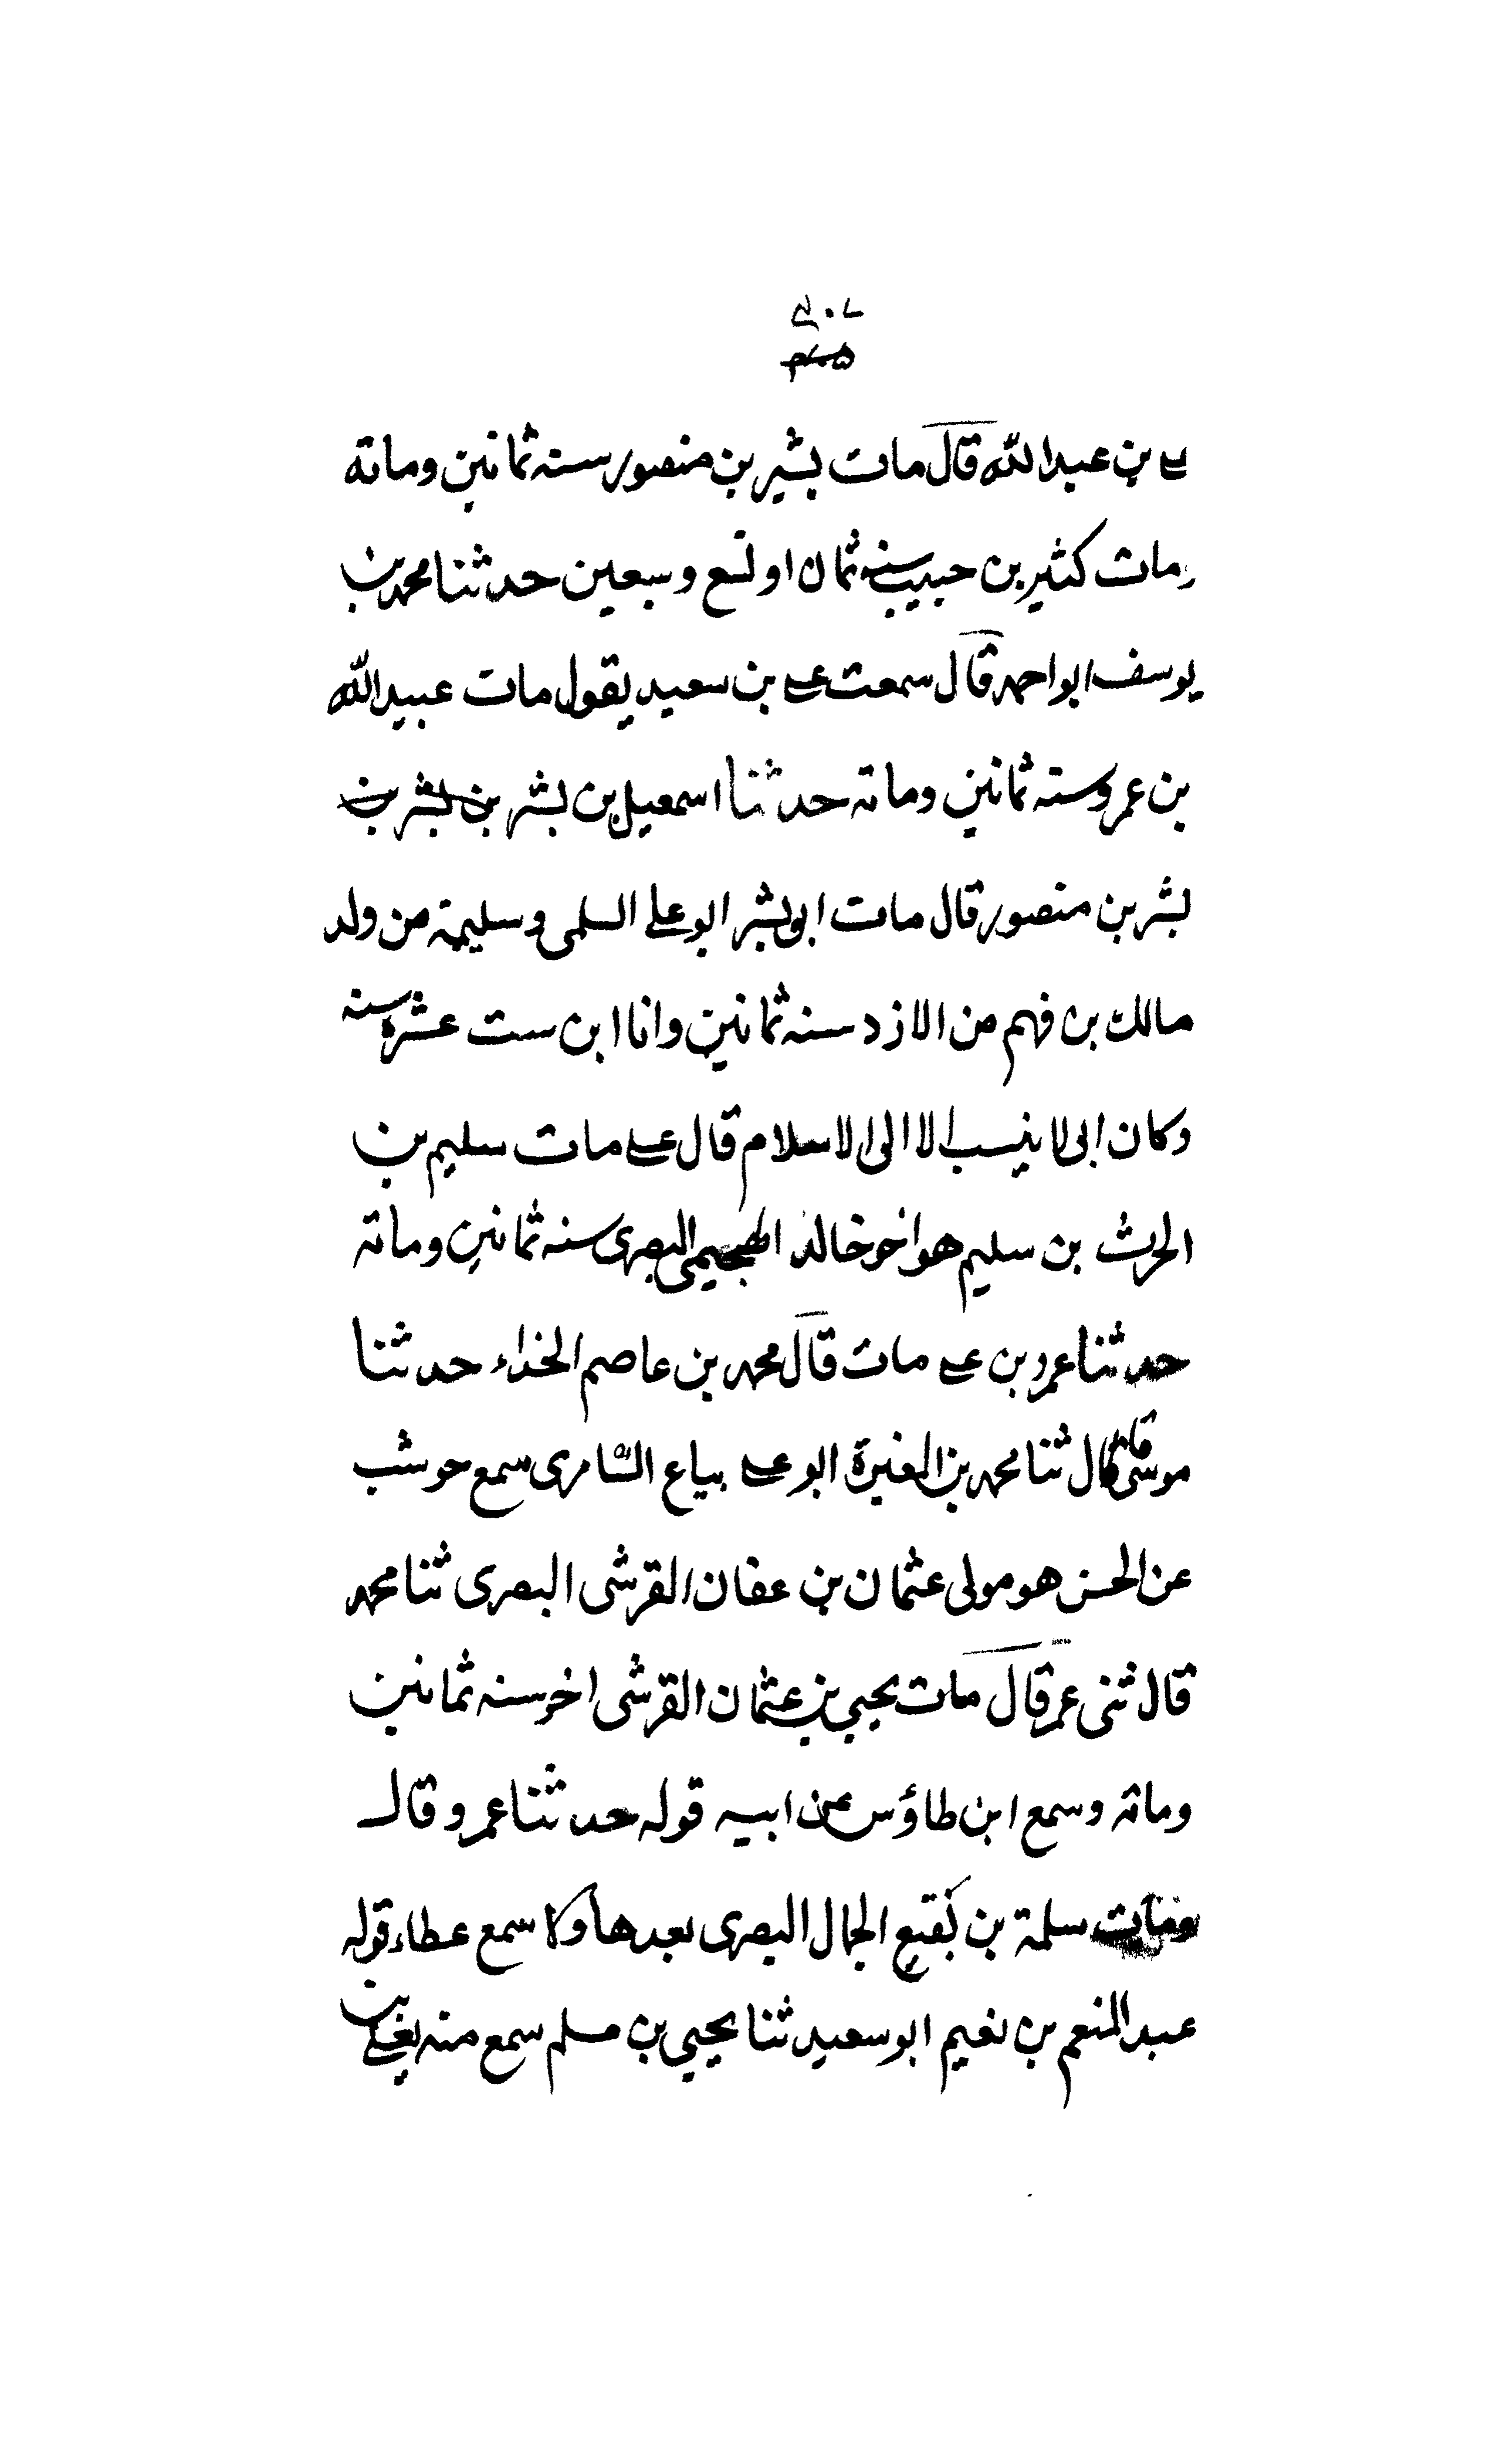 بن عبد الله قال مات بشير بن منصور سنه ثمانين ومائة
ومات كثير بن حبيب سنه ثمان او تسع وسبعين حدثنا محمد بن
يوسف ابو احمد قال سمعت على بن سعيد يقول مات عبيد الله
بن عمرو سنه ثمانين ومائة حدثنا اسمعيل بن بشر بن بشر بن
بشر بن منصور قال مات ابو بشر ابو على السلمى وسليمة من ولد
مالك بن فهم من الازد سنه ثمانين وانا ابن ست عشره سنه
وكان ابى لا ينسب الا الى الاسلام قال على مات سليم بن
الحرث بن سليم هو اخو خالد الهجيمى البصرى سنه ثمانين ومائة
حدثنا عمرو بن على مات قال محمد بن عاصم الخذاء حدثنا
موسى قال ثنا محمد بن المغيرة ابو على بياع السامرى سمع حوشب
عن الحسن هو مولى عثمان بن عفان القرشى البصرى ثنا محمد
قال ثنى عمر قال مات يحيى بن عثمان القرشى اخو سنه ثمانين
ومائة وسمع ابن طاؤس عن ابيه قوله حدثنا عمرو قال
ومات سلمة بن بقيع الجمال البصرى بعدها وكا سمع عطاء قوله
عبد المنعم بن نعيم ابو سعيد ثنا يحيى بن مسلم سمع منه